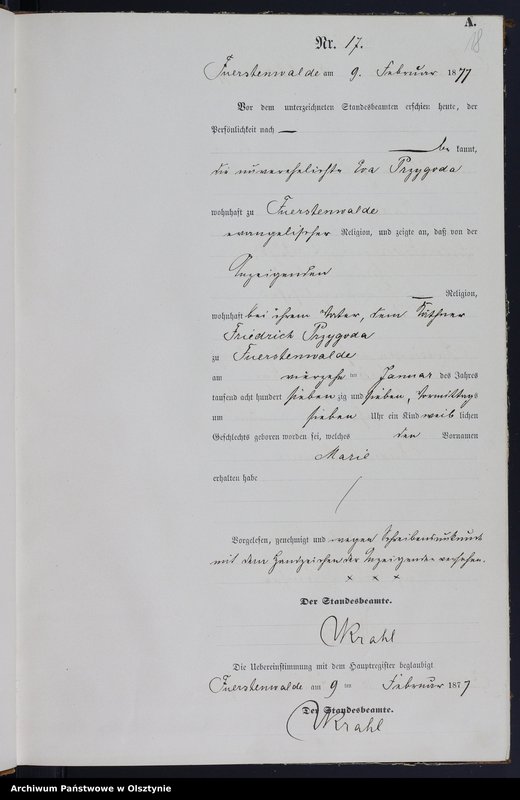 A.
18
Nr. 17.
Fuerstenwalde am 9. Februar 1877
Vor dem unterzeichneten Standesbeamten erschien heute, der
Persönlichkeit nach —
be kannt,
die unverehelichte Eva Przygoda
wohnhaft zu Fuerstenwalde
evangelischer Religion, und zeigte an, daß von der
Anzeigenden
— Religion,
wohnhaft bei ihrem Vater, dem Käthner
Friedrich Przygoda
zu Fuerstenwalde
am vierzehn ten Januar des Jahres
tausend acht hundert sieben zig und sieben, Vormittags
um sieben Uhr ein Kind weib lichen
Geschlechts geboren worden sei, welches den Vornamen
Marie
erhalten habe
Vorgelesen, genehmigt und wegen Schreibensunkunde
mit dem Handzeichen der Anzeigenden versehen.
x x x
Der Standesbeamte.
Krahl
Die Uebereinstimmung mit dem Hauptregister beglaubigt
Fuerstenwalde am 9 ten Februar 1877
Der Standesbeamte.
Krahl
Archiwum Państwowe w Olsztynie